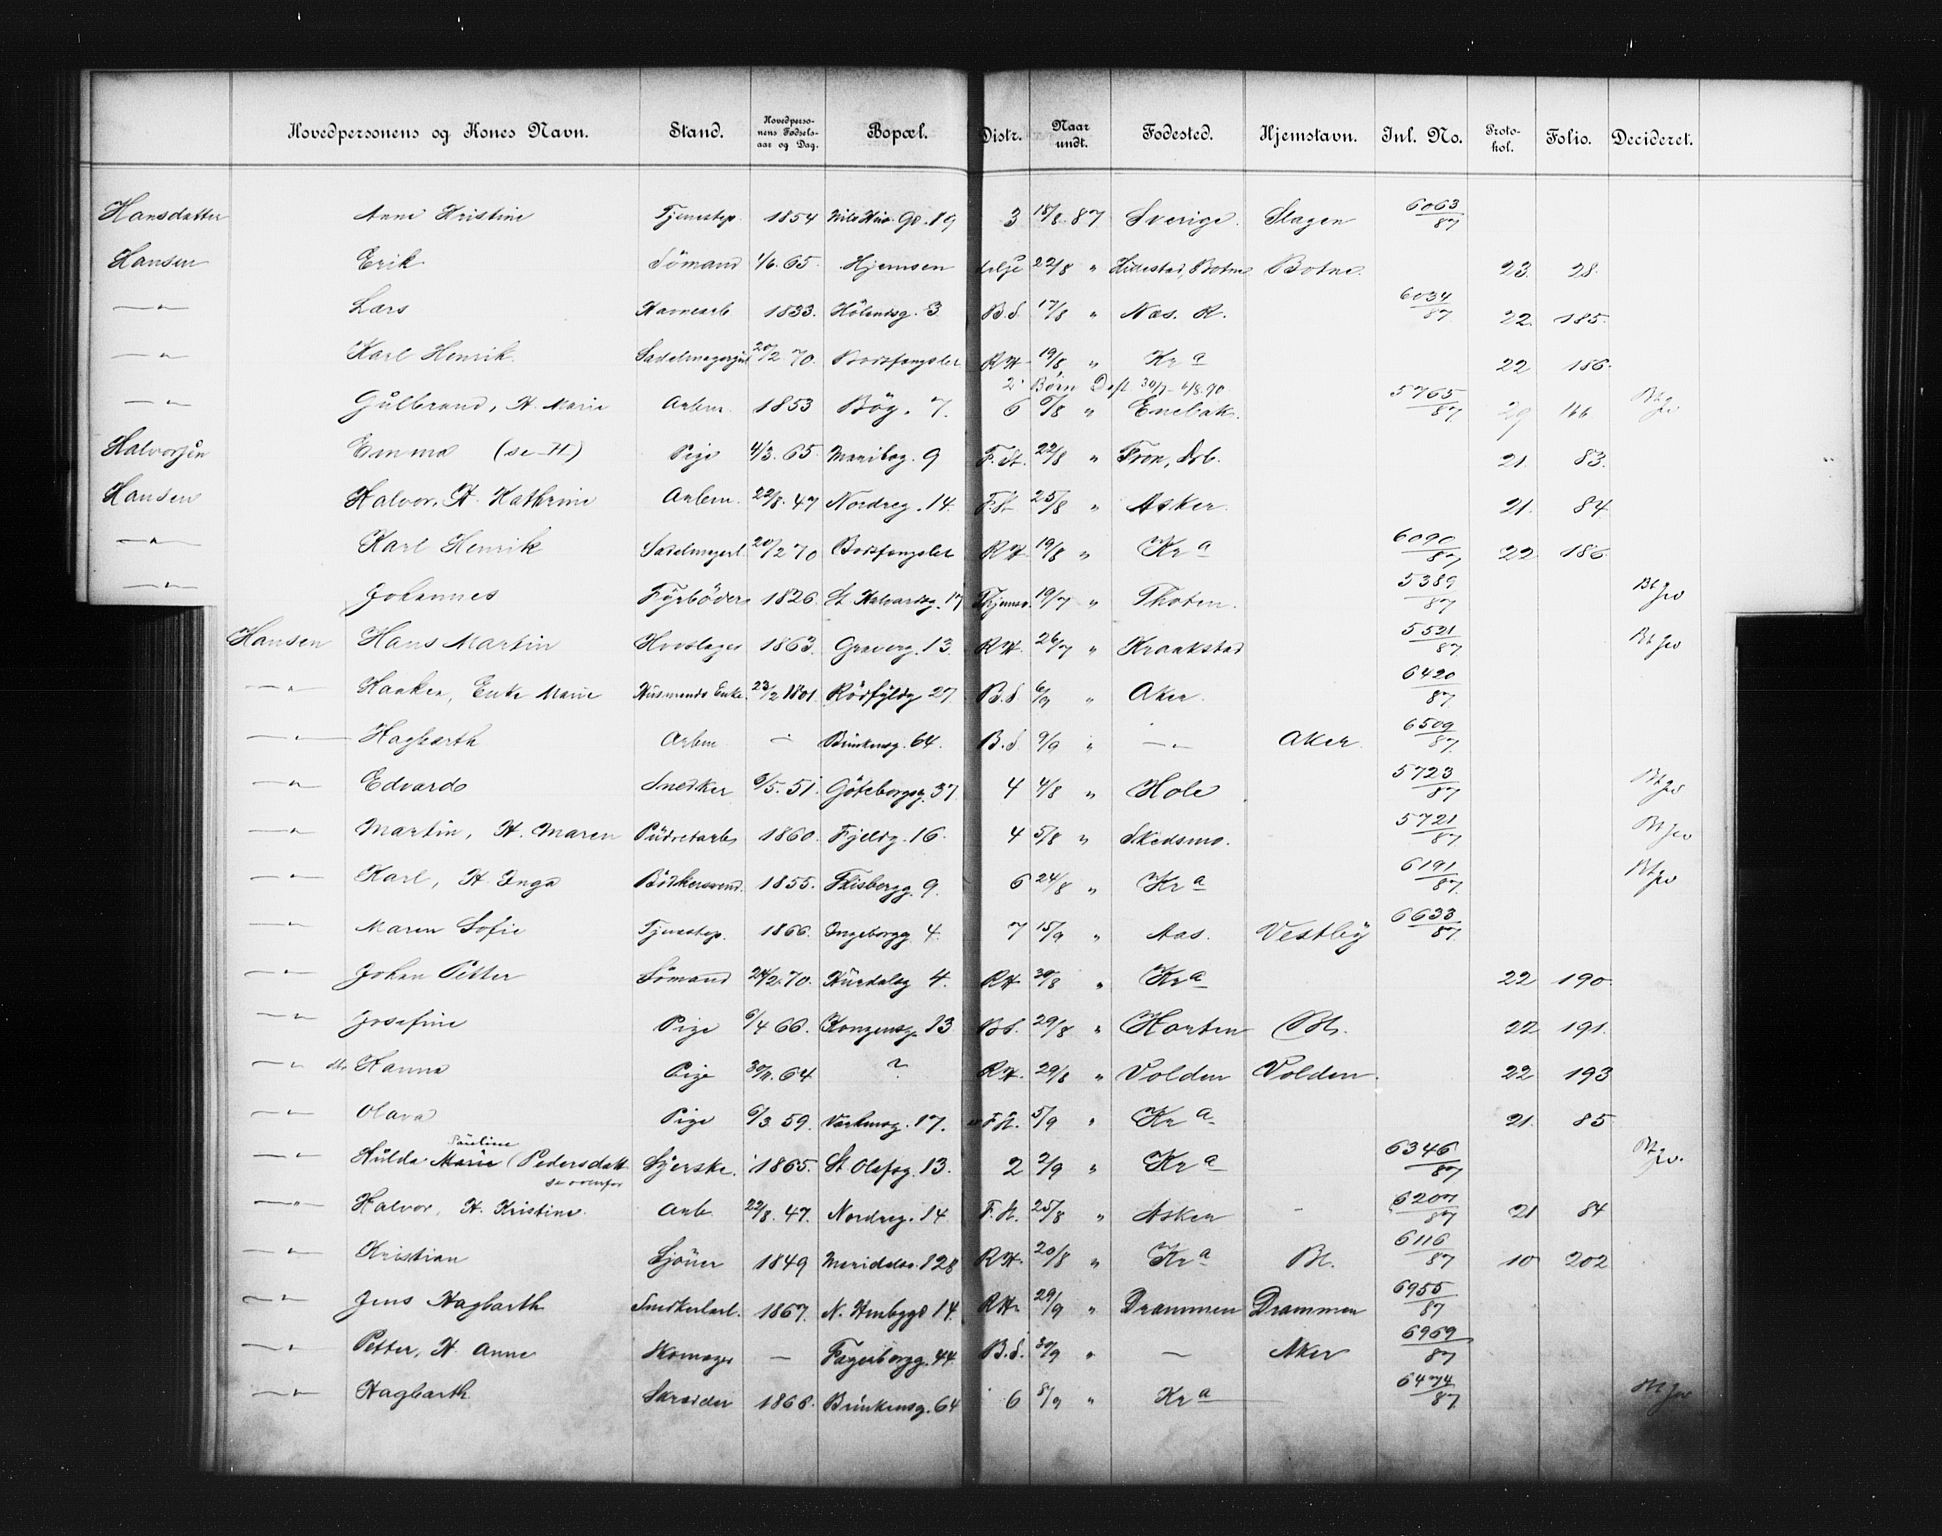 Hovedpersonens og Kones Navn. Stand. Hovedpersonens Fødselsaar og Dag. Bopæl. Distr. Naar undt. Fødested. Hjemstavn. Inl. No. Protokol. Folio. Decideret.
Hansdatter Anne Kristine Tjenestep. 1854 19 3 18/8 87 Sverige. Slagen 6063/87
Hansen Erik Sömand 1/6 65. Hjemsen 22/8 " Hillestad, Botne Botne. 23 28.
—"— Lars Havnearb 1833. Hölandsg. 3 B.S. 17/8 " Næs. R. 6034/87 22. 185.
—"— Karl Henrik Sadelmagersv 20/2 70. Bodsfængslet RH 19/8 " Kra 22 186.
2 Börn Döpt 30/7 - 6/8 90
—"— Gulbrand, H. Marie Arbm. 1853 Bög. 7. 6 6/8 " Enebak. 5765/87 29 166
Halvorsen Emma (se H) Pige 4/3 65. Maribog. 9 F.St. 22/8 " Fron, Gdb. 21. 83.
Hansen Halvor, H. Kathrine Arbm. 22/8. 47 Nordreg. 14. F.St 25/8 " Asker. 21. 84
—"— Karl Henrik Sadelmagerl. 20/2 70 Bodsfængslet RH. 19/8 " Kra 6090/87 22. 186
—"— Johannes Fyrböder 1826. St Halvardsg. 17 19/7 " Thoten. 5389/87
Hansen Hans Martin Hovslager 1863. Graverg. 13. RH. 26/7 " Kraakstad 5521/87
—"— Haaken, Enke Marie Husmands Enke. 23/2 1801. Rödfyldg 27. B.S 6/9 " Aker. 6420/87
—"— Hagbarth Arbm — Brinkensg. 64. B.S. 9/9 " —"— Aker. 6509/87
—"— Edvard Snedker 6/5. 51. Göteborgsg. 37. 4 4/8 " Hole 5723/87
—"— Martin, H. Maren Pudretarb 1860. Fjeldg. 16. 4 5/8 " Skedsmo. 5721/87
—"— Karl, H. Inga Bödkersvend. 1855. Flisbergg. 9. 6 24/8 " Kra 6191/87
—"— Maren Sofie Tjenestep. 1866. Ingeborgg. 4. 7 15/9 " Aas. Vestby 6633/87.
—"— Johan Petter Sömand 24/2. 70. Hurdalsg 4. RH. 30/8 " Kra 22 190
—"— Josefine Pige 6/4 66. Kongensg. 13 BS. 29/8 " Horten Bl. 22 191.
—"— dtr Hanna Pige 64 " RH. 29/8 " Volden Volden. 22 193
—"— Olava Pige 6/3 59. 17. F.H. 5/9 " Kra 21. 85.
Pauline
—"— Hulda Marie (Pedersdatt Syerske. 1865. St Olafsg. 13. 2 2/9 " Kra 6346/87
se ovenfor
—"— Halvor, H. Kristine. Arb. 22/8. 47. Nordreg. 14 F.H. 25/8 " Asker - 6207/87 21 84
—"— Kristian Sjöner 1849 Maridalsv. 128 RH. 20/8 " Kra Bl. 6116/87 10 202
—"— Jens Hagbarth Snedkerlærl. 1867. 14. RH. 29/9 " Drammen Drammen 6955/87
—"— Petter, H. Anne Skomager — Fagerborgg. 44 B.S. 30/9 " — Aker 6969/87
—"— Hagbarth Skræder 1868. Brinkensg. 64 6 8/9 " Kra 6474/87